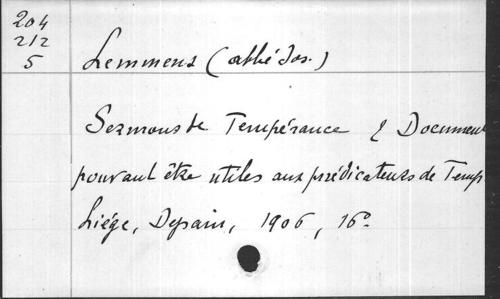 204
212
5
Lemmens (abbé Jos.)
Sermons de Tempérance & Document
pouvant être utiles aux prédicateurs de Temp
Liége, Dessain, 1906, 16°